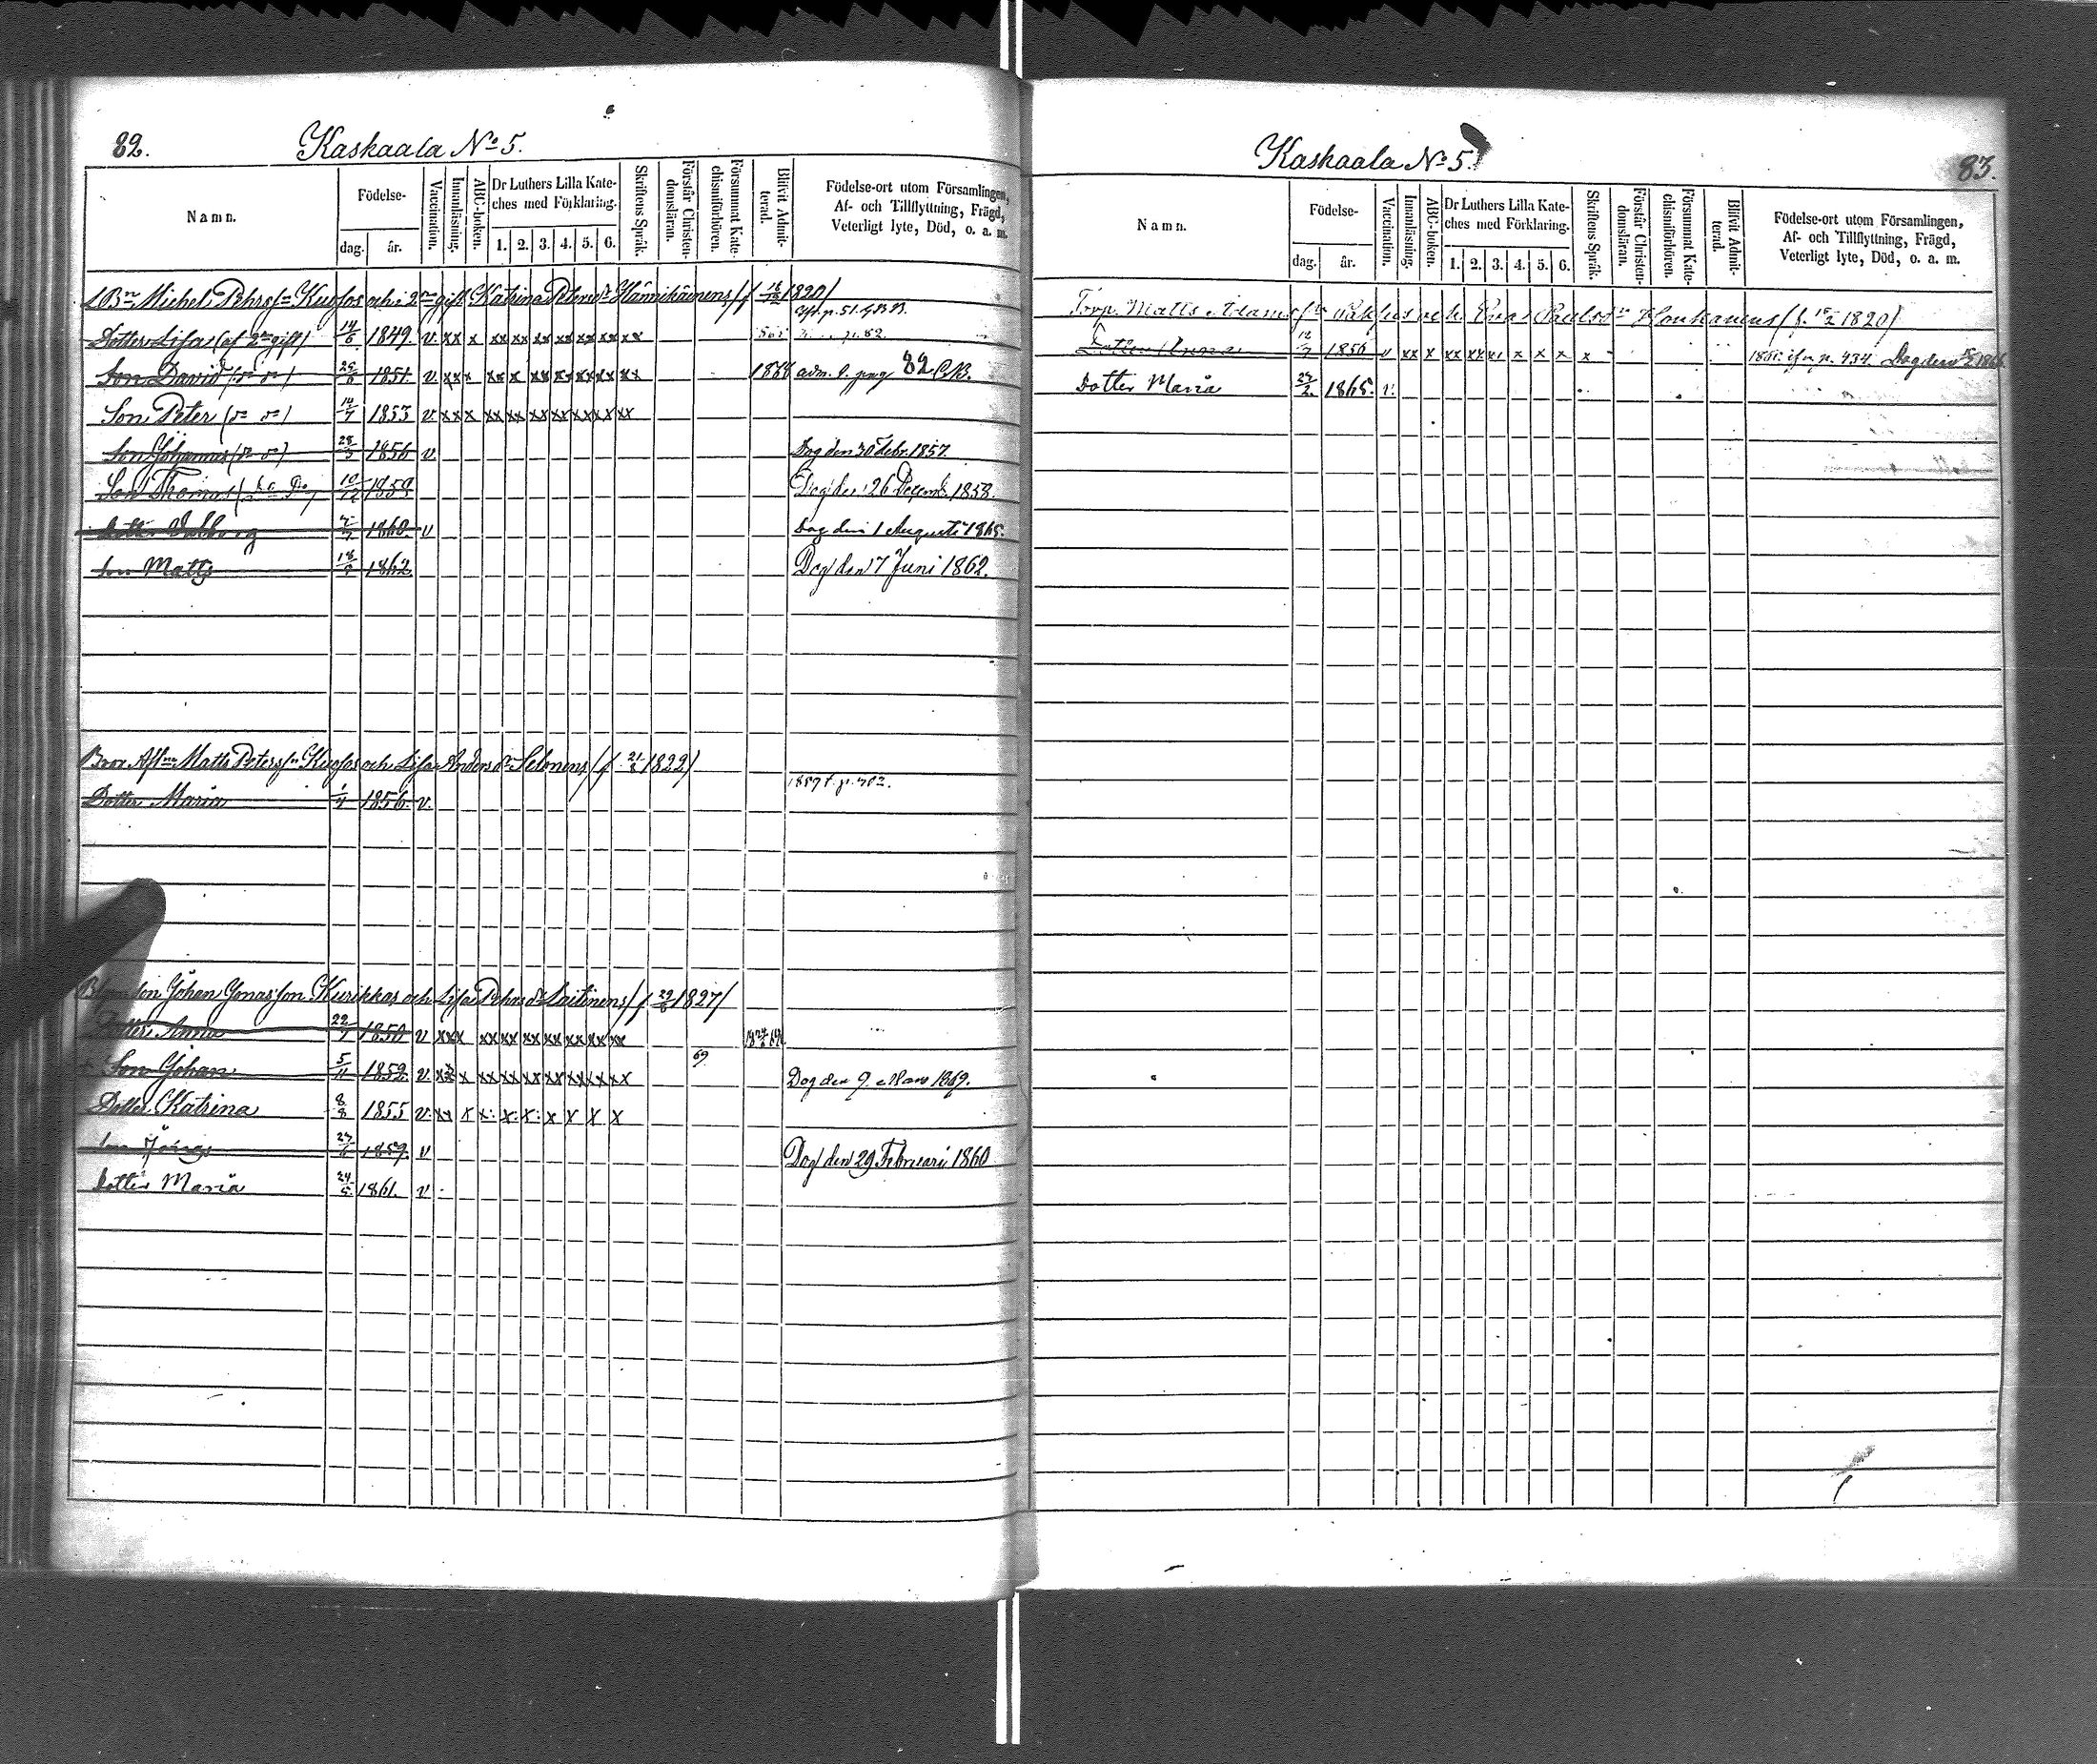 82.
Kaskaala No 5.
Namn.
Födelse-
dag.
år.
Vaccination.
Innanläsning.
ABC-boken.
Dr Luthers Lilla Kate-
ches med Förklaring.
1. 2. 3. 4. 5. 6.
Skriftens Språk.
Förstår Christen-
domsläran.
Försummat Kate-
chismiförhören.
Blifvit Admit-
terad.
Födelse-ort utom Församlingen,
Af- och Tillflyttning, Frägd,
Veterligt lyte, Död, o. a. m.
Michel Pehrss:n Kuosas och i 2 gift Katrina Petersdr Hännikäinens (f 1820)
p. 51.
Dotter Lisa (af 2 gift) 14/6 1849. v. xx x xx xx xx xx xx xx xx p. 82.
Son David 1851. v. xx x xx x xx xx xx xx xx 1868 adm. pag 82 C.B.
Son Peter 1853 v. xx x xx xx xx xx xx xx xx
Son Johannes 28/3 1856 v. Dog den Febr. 1857
Son Thomas 10/12 1858 Dog den 26 Decemb. 1858.
Dotter Valborg 1860. v Dog den 1 Augusti 1865.
Son Matts 1862. Dog den 7 Juni 1862.
Matts Peterss:n Kuosas och Lisa Andersdr Selonens (f. 1822)
Dotter Maria 1/4 1856. v.
Johan Jonasson Kurikkas och Lisa Pehrsdr Laitinens (f 1827)
Dotter Anna 22/7 1850 v xx x xx xx xx xx xx xx xx
Son Johan 5/11 1852. v. xx x xx xx xx xx xx xx xx 69 Dog den 9. Mars 1869.
Dotter Katrina 8/8 1855 v. xx x x. x. x. x x x x
Son 1859. v Dog den 29 Februari 1860
Dotter Maria 24/5 1861. v
Kaskaala No 5.
83.
Namn.
Födelse-
dag.
år.
Vaccination.
Innanläsning.
ABC-boken.
Dr Luthers Lilla Kate-
ches med Förklaring.
1. 2. 3. 4. 5. 6.
Skriftens Språk.
Förstår Christen-
domsläran.
Försummat Kate-
chismiförhören.
Blifvit Admit-
terad.
Födelse-ort utom Församlingen,
Af- och Tillflyttning, Frägd,
Veterligt lyte, Död, o. a. m.
Torp. Matts Adams och Eva Paulsdr Houhanens (f. 1820)
Dotter Anna 1850 v xx x xx xx x x x x x p. 434. Dog den
Dotter Maria 1865. v.